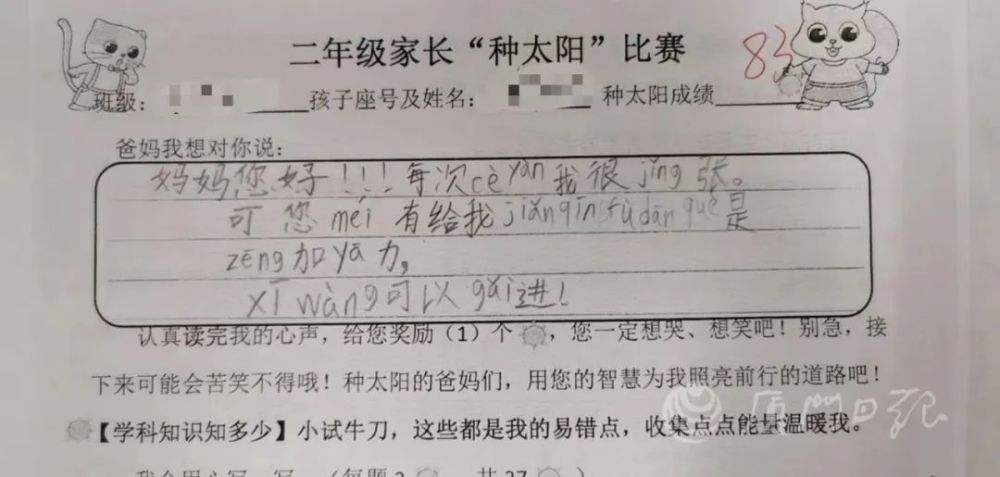 二年级家长“种太阳”比赛
83
班级：孩子座号及姓名：种太阳成绩
爸妈我想对你说：
妈妈您好！！！每次cè yàn我很jǐng张。
可您méi有给我jiǎnqīn fù dān què是
zēng加yā力，
xī wàng可以gǎi进！
认真读完我的心声，给您奖励（1）个，您一定想哭、想笑吧！别急，接
下来可能会苦笑不得哦！种太阳的爸妈们，用您的智慧为我照亮前行的道路吧！
【学科知识知多少】小试牛刀，这些都是我的易错点，收集点点能量温暖我。
厦门日报